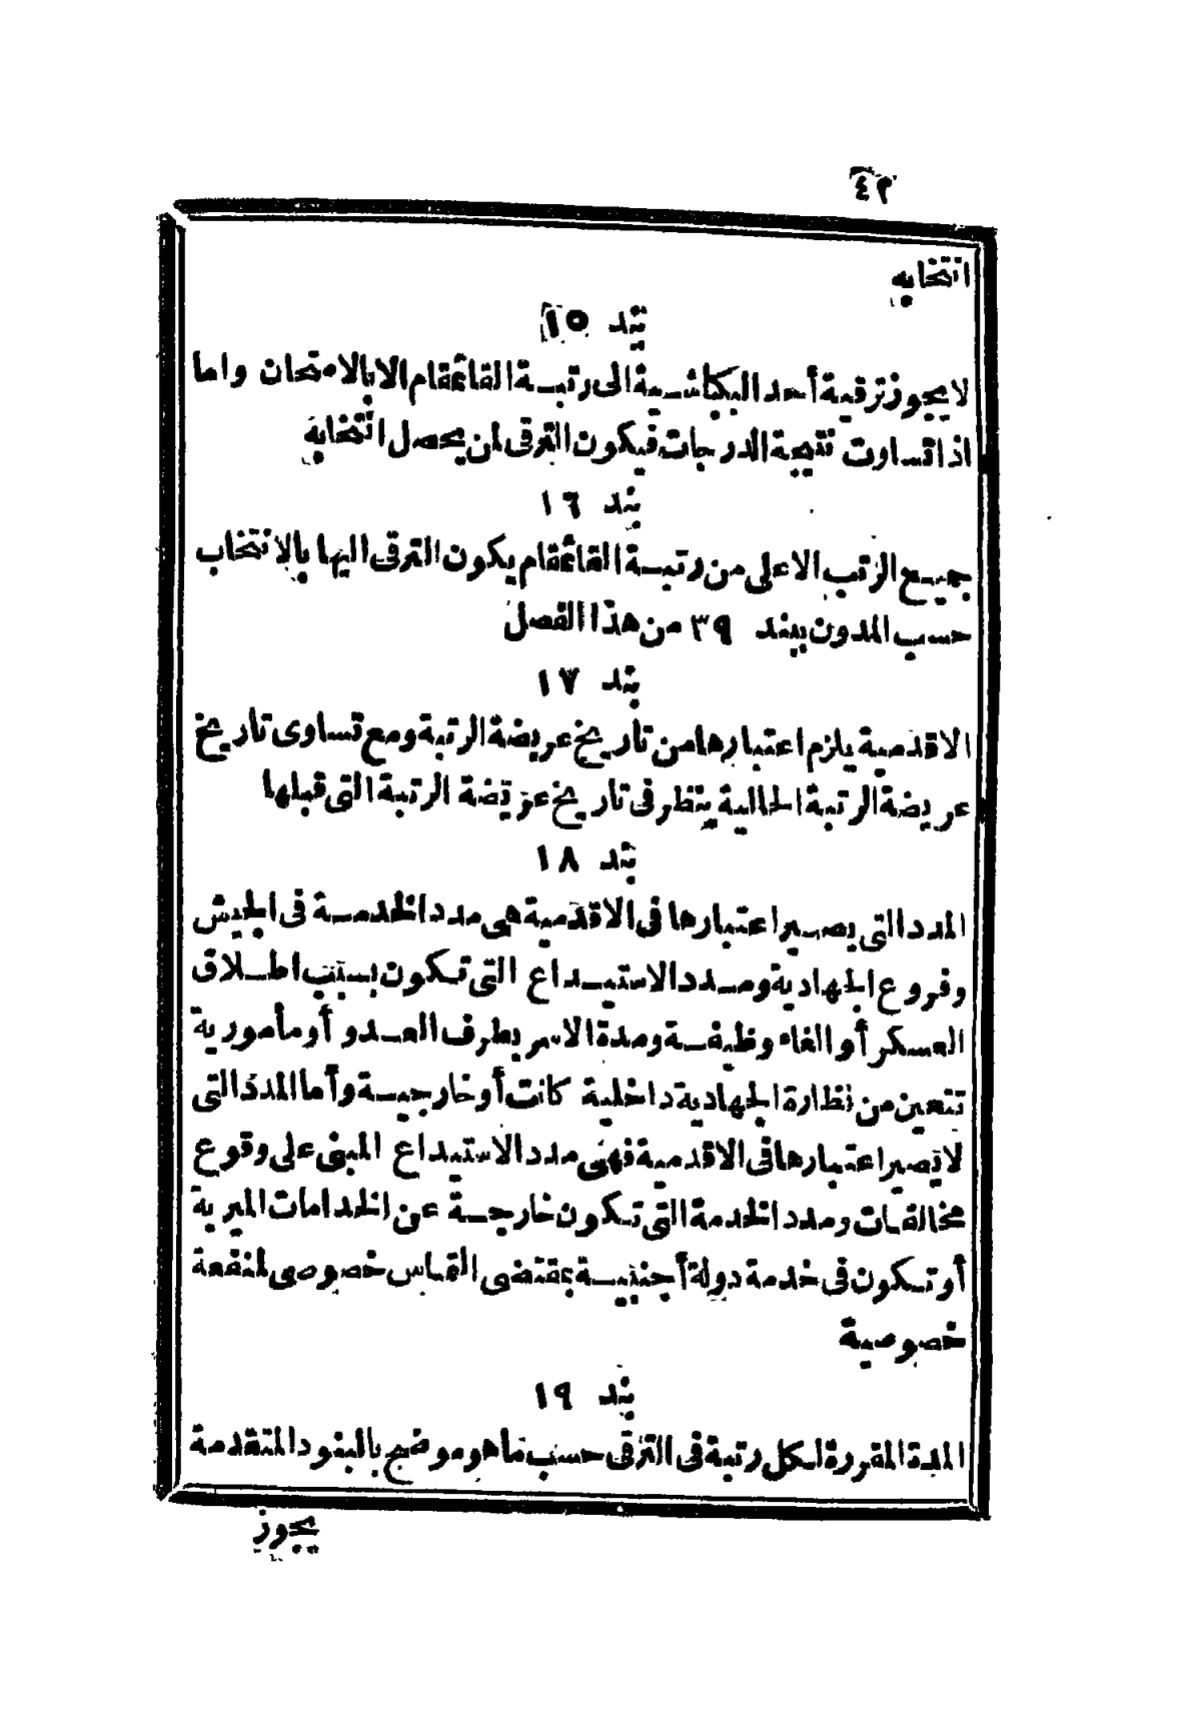 ٤٢
انتخابه
بند ١٥
لا يجوز ترقية أحد البكباشية الى رتبة القائمقام الا بالامتحان واما
اذا تساوت نتيجة الدرجات فيكون الترقى لمن يحصل انتخابه
بند ١٦
جميع الرتب الاعلى من رتبة القائمقام يكون الترقى اليها بالانتخاب
حسب المدون ببند ٣٩ من هذا الفصل
بند ١٧
الاقدمية يلزم اعتبارها من تاريخ عريضة الرتبة ومع تساوى تاريخ
عريضة الرتبة الحالية ينظر فى تاريخ عريضة الرتبة التى قبلها
بند ١٨
المدد التى يصير اعتبارها فى الاقدمية هى مدد الخدمة فى الجيش
وفروع الجهادية ومدد الاستيداع التى تكون بسبب اطلاق
العسكر أو الغاء وظيفة ومدة الاسر بطرف العدو أو مأمورية
تتعين من نظارة الجهادية داخلية كانت أو خارجية وأما المدد التى
لا تصير اعتبارها فى الاقدمية فهى مدد الاستيداع المبنى على وقوع
مخالفات ومدد الخدمة التى تكون خارجة عن الخدامات الميرية
أو تكون فى خدمة دولة أجنبية بمقتضى التماس خصوصى لمنفعة
خصوصية
بند ١٩
المدة المقررة لكل رتبة فى الترقى حسب ما هو موضح بالبنود المتقدمة
يجوز